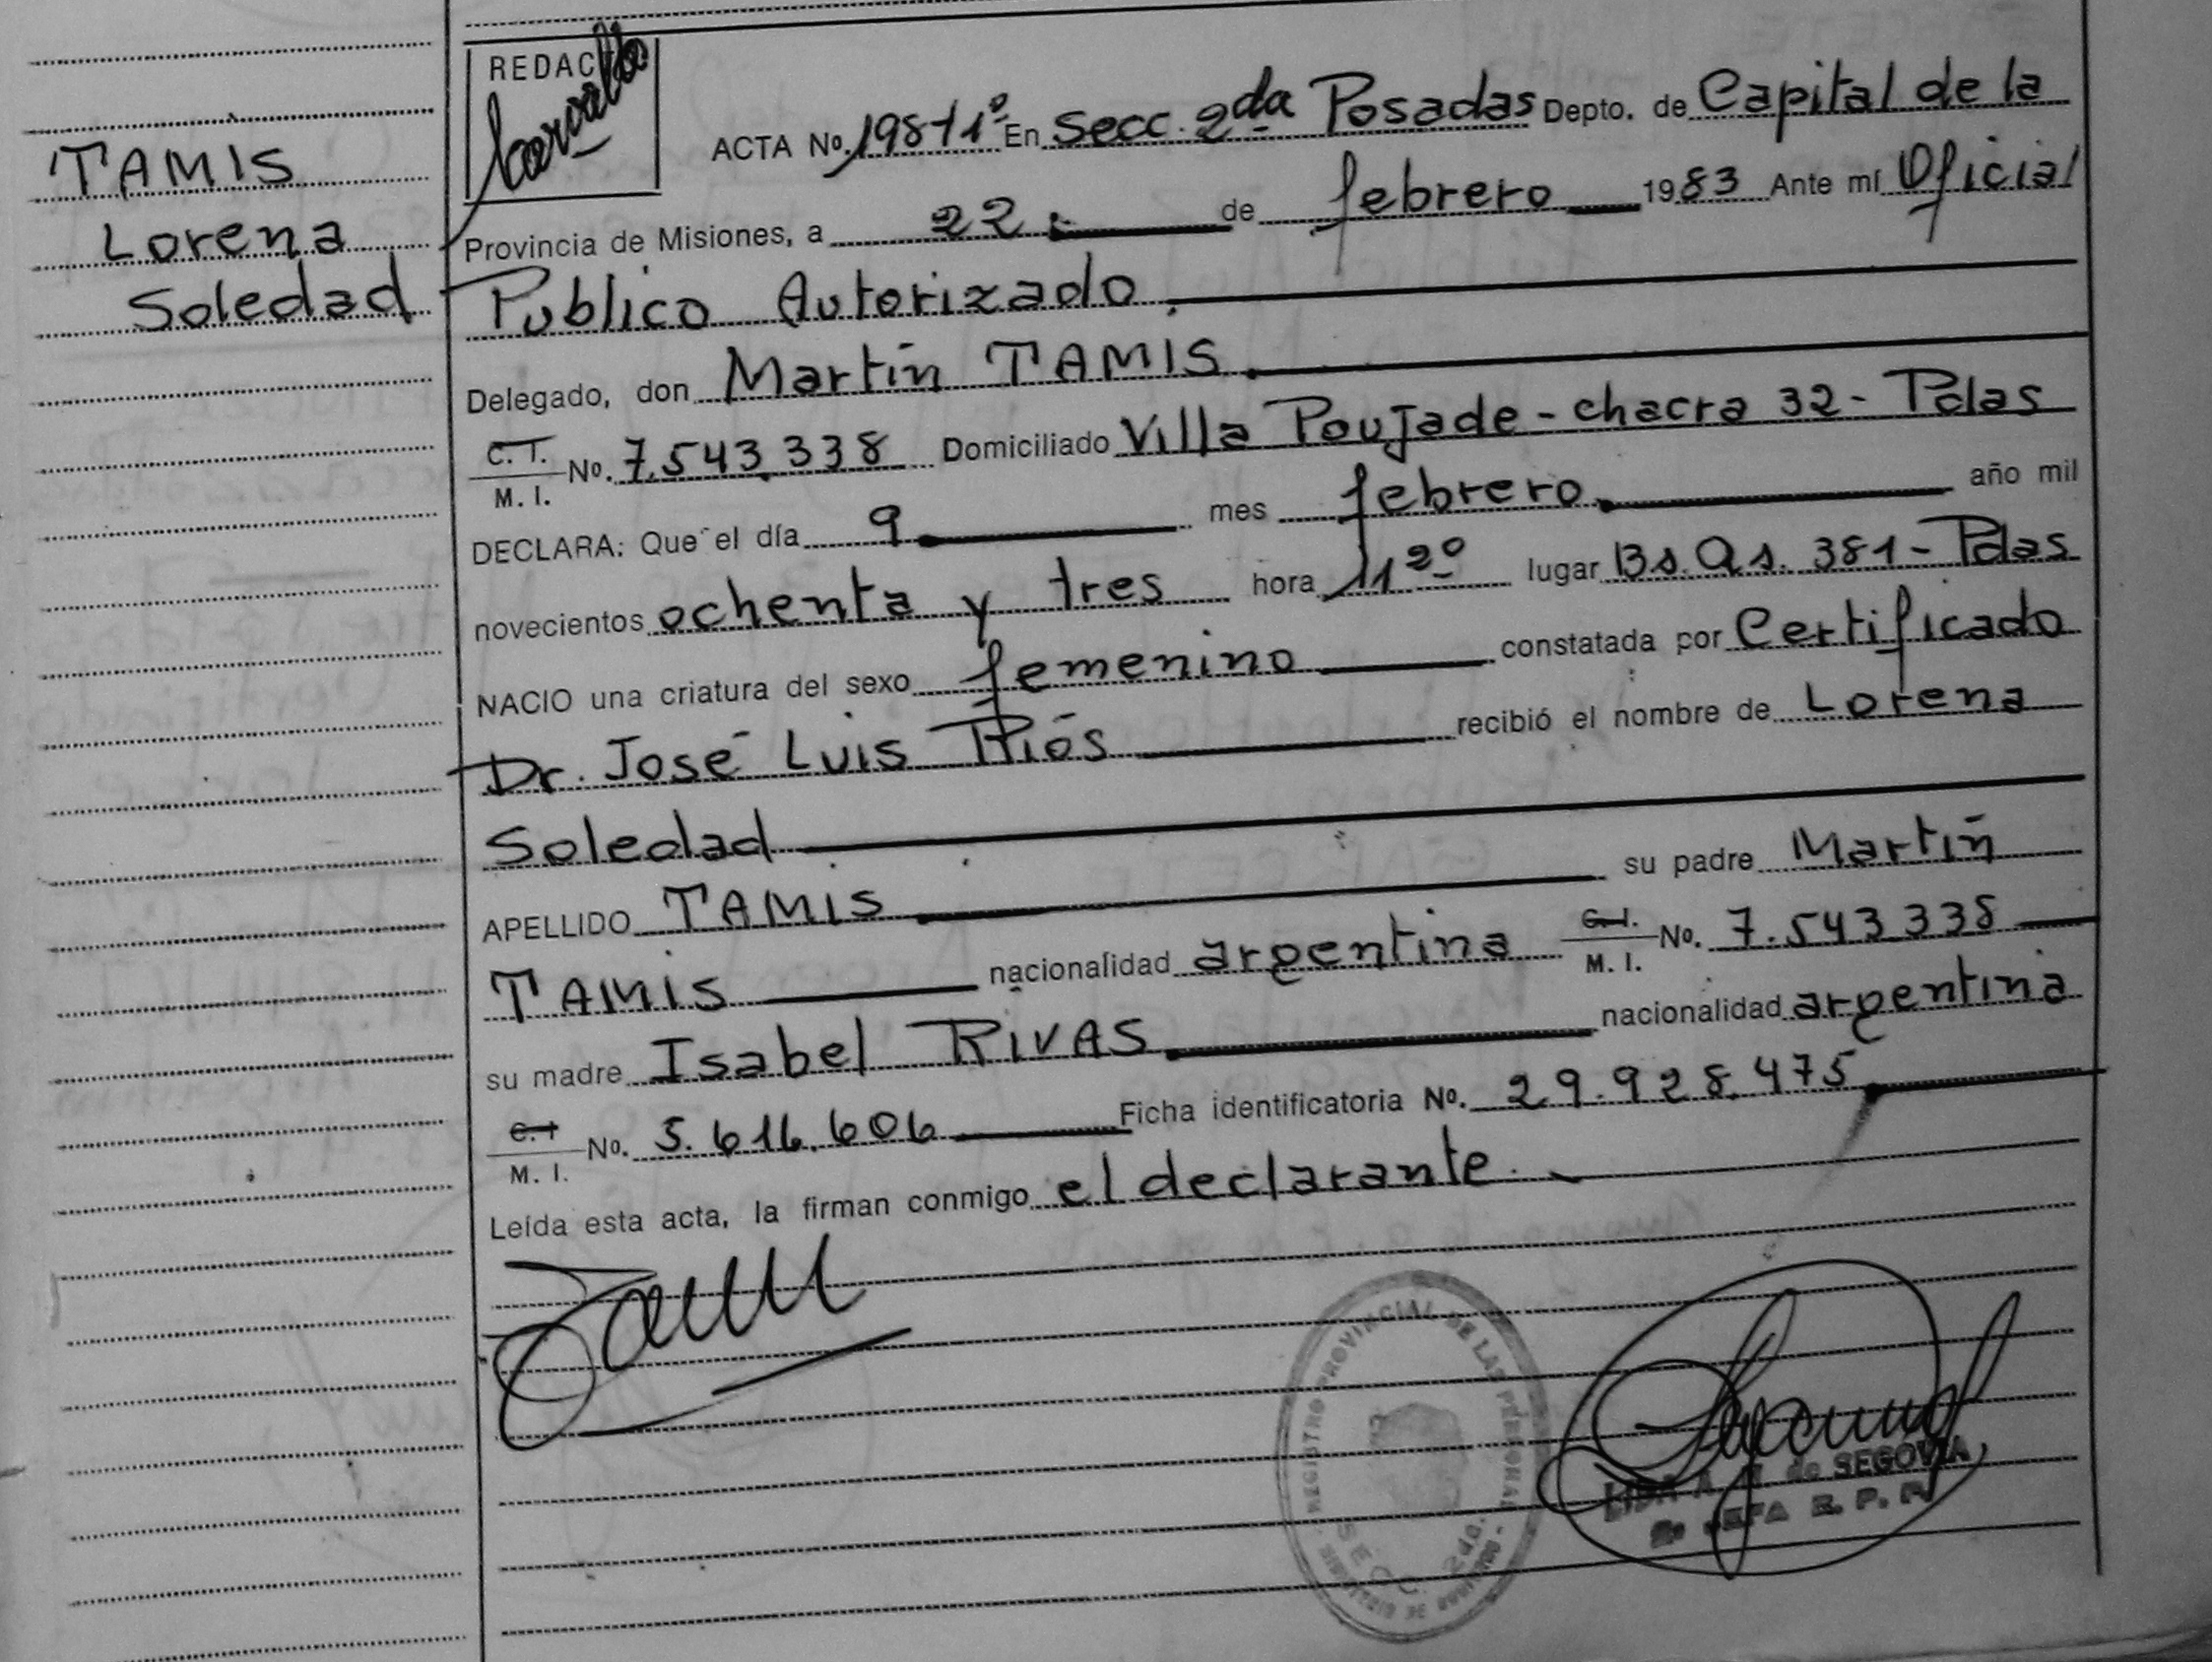 TAMIS
Lorena
Soledad
REDAC
ACTA No. 198 t 1º En Secc. 2da Posadas Depto. de Capital de la
Provincia de Misiones, a 22 de febrero 1983 Ante mí Oficial
Publico Autorizado.
Delegado, don Martín TAMIS
C. I. M. I. No. 7.543.338 Domiciliado Villa Poujade - chacra 32 - Pdas
DECLARA: Que el día 9 mes febrero año mil
novecientos ochenta y tres hora 11 20 lugar Bs. As. 381 - Pdas
NACIO una criatura del sexo femenino constatada por Certificado
Dr. José Luis Ríos recibió el nombre de Lorena
Soledad
APELLIDO TAMIS su padre Martín
TAMIS nacionalidad argentina C. I. M. I. No. 7.543.338
su madre Isabel RIVAS nacionalidad argentina
C. I M. I. No. 5.616.606 Ficha identificatoria No. 29.928.475
Leída esta acta, la firman conmigo el declarante.
REGISTRO PROVINCIAL DE LAS PERSONAS
SECC. 2da.
MINISTERIO DE GOBIERNO
de SEGOVIA
JEFA